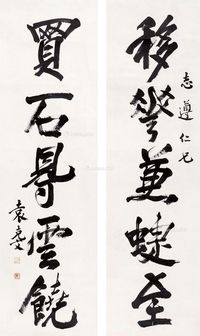 移花兼蝶至
志遵仁兄
買石得雲饒
袁克文